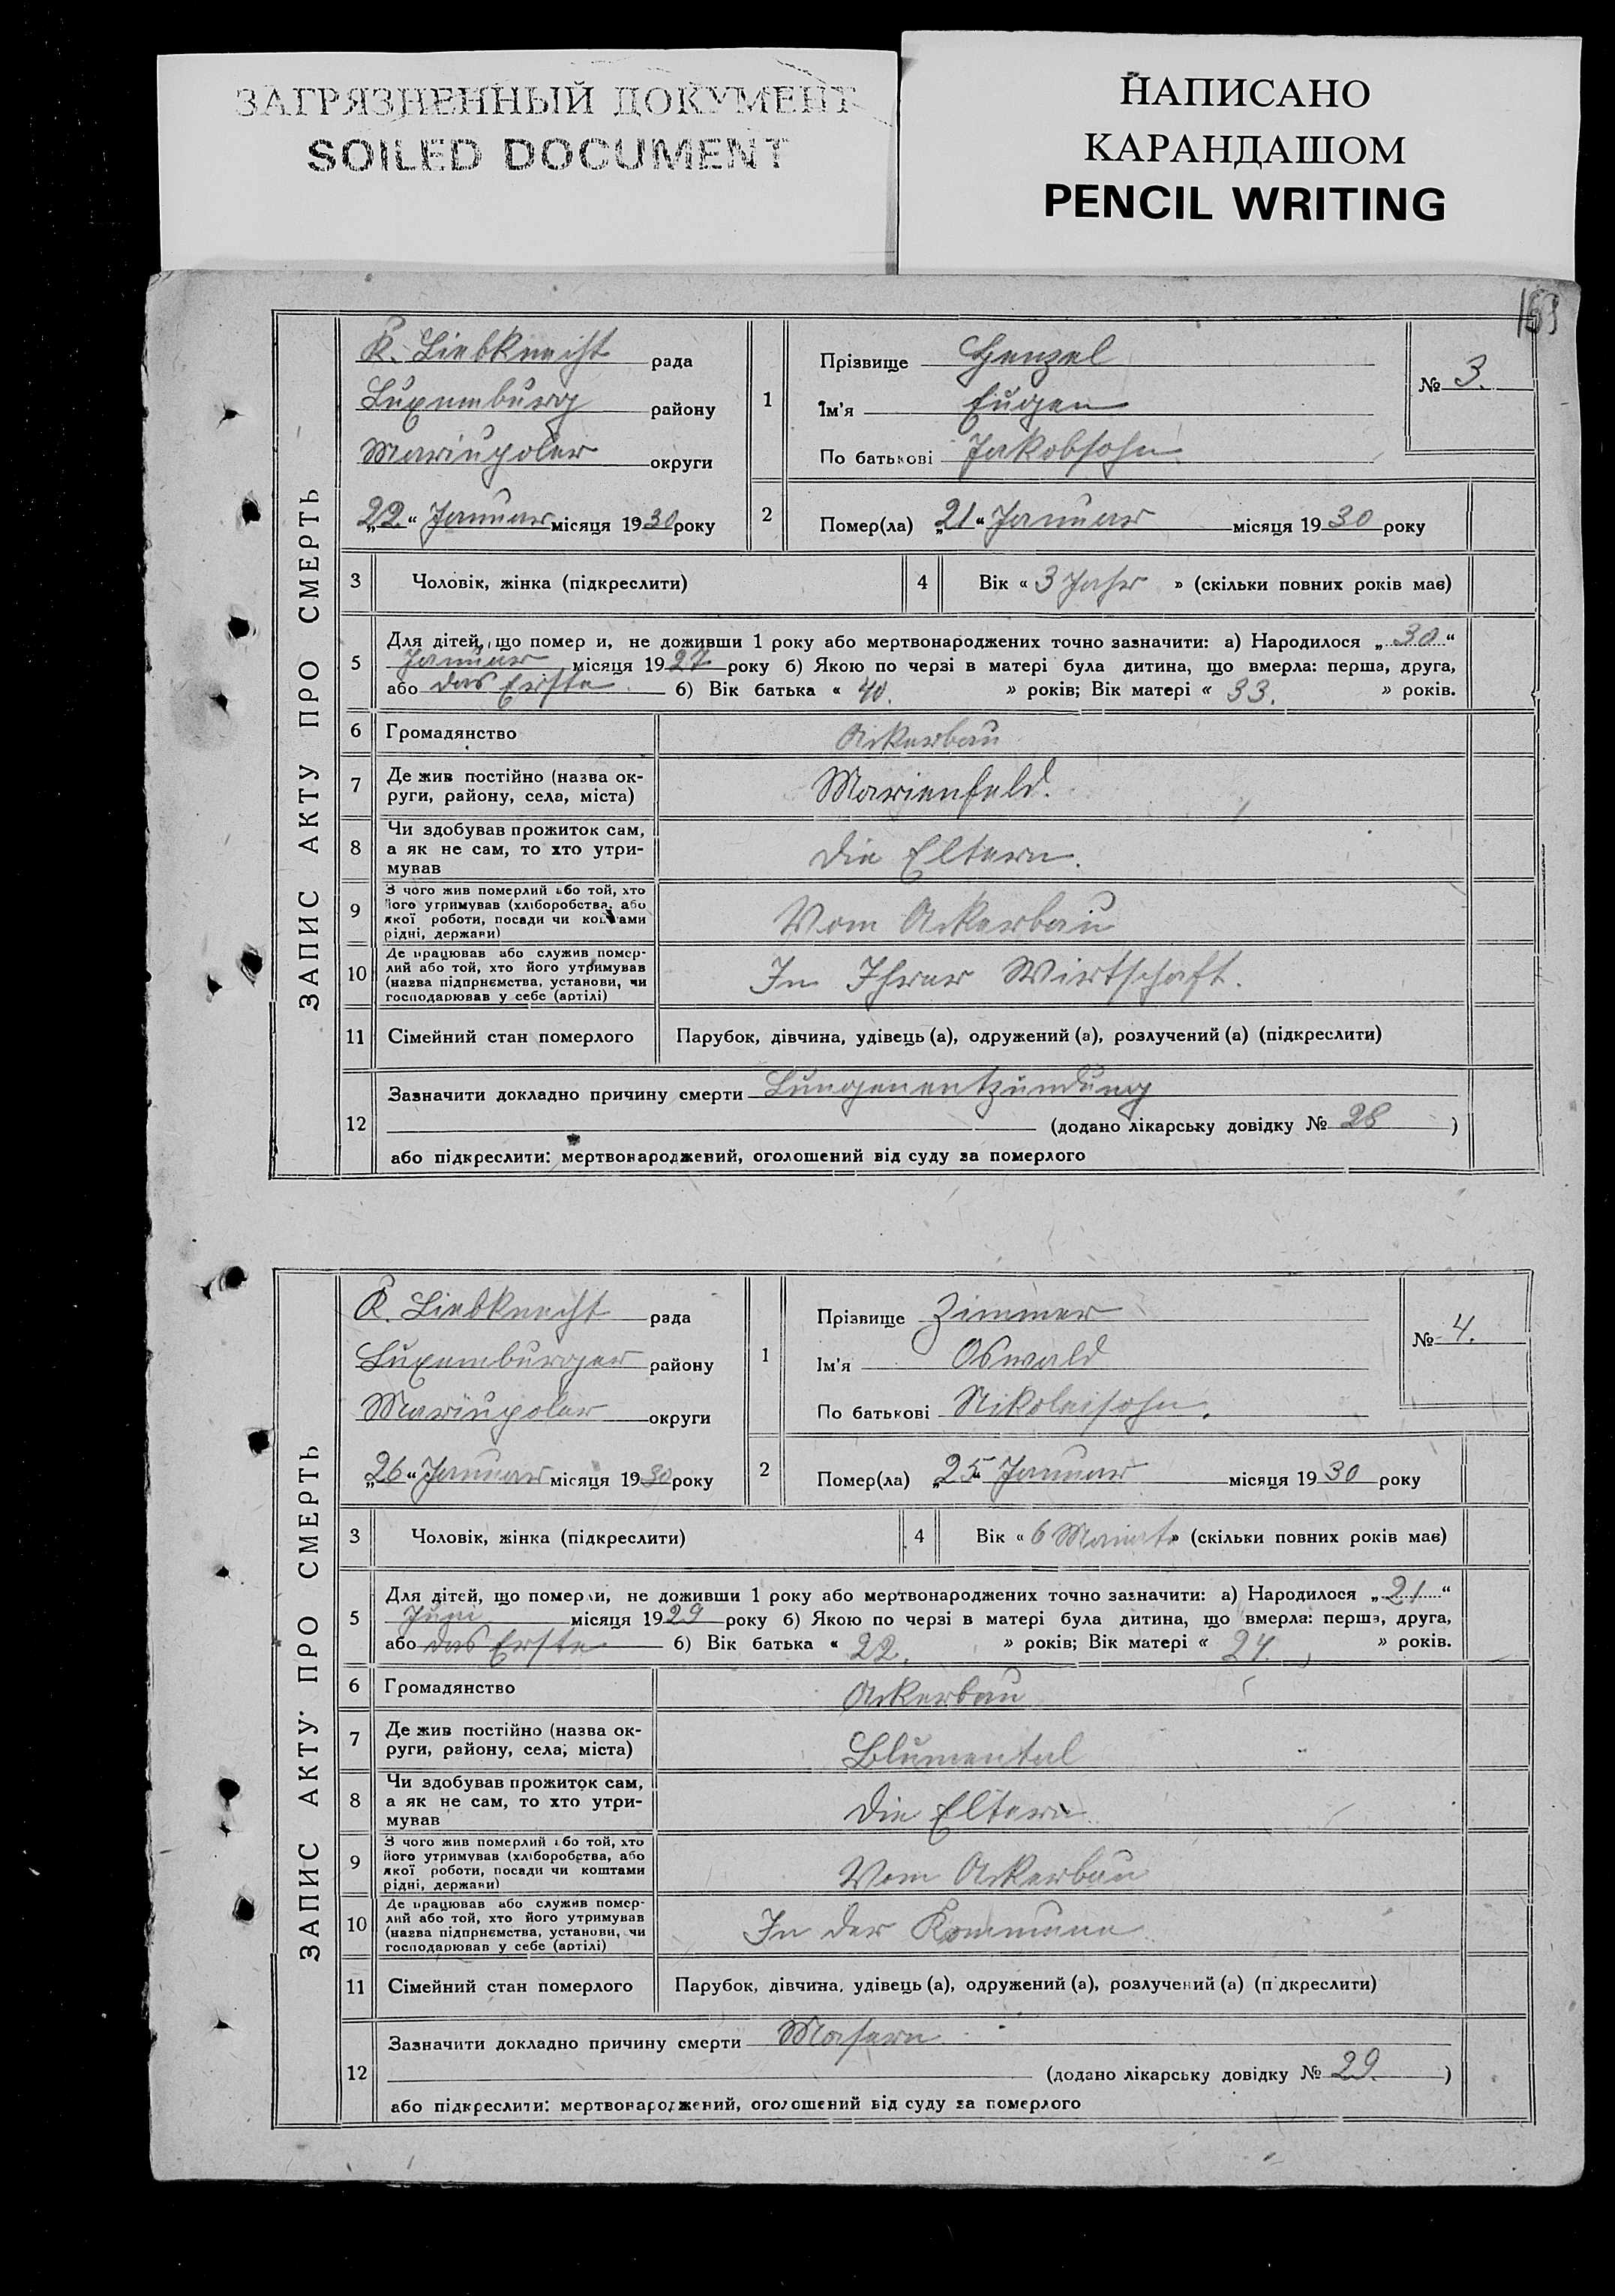 ЗАГРЯЗНЕННЫЙ ДОКУМЕНТ
SOILED DOCUMENT
НАПИСАНО
КАРАНДАШОМ
PENCIL WRITING
ЗАПИС АКТУ ПРО СМЕРТЬ
K. Liebknecht рада
Luxemburg району
Mariupoler округи
„22“ Januar місяця 1930 року
1
Прізвище Henzel
Ім'я Eugen
По батькові Jakobsohn
№ 3.
2
Помер(ла) „21“ Januar місяця 1930 року
3 Чоловік, жінка (підкреслити)
4 Вік « 3 Jahr » (скільки повних років має)
5 Для дітей, що помер и, не доживши 1 року або мертвонароджених точно зазначити: а) Народилося „30“
Januar місяця 1927 року б) Якою по черзі в матері була дитина, що вмерла: перша, друга,
або das Erste б) Вік батька « 40. » років; Вік матері « 33. » років.
6 Громадянство Ackerbau
7 Де жив постійно (назва ок-
руги, району, села, міста) Marienfeld.
8 Чи здобував прожиток сам,
а як не сам, то хто утри-
мував die Eltern.
9 З чого жив померлий або той, хто
його утримував (хліборобства, або
якої роботи, посади чи коштами
рідні, держави) Vom Ackerbau
10 Де працював або служив помер-
лий або той, хто його утримував
(назва підприємства, установи, чи
господарював у себе (артілі) In Ihrer Wirtschaft.
11 Сімейний стан померлого Парубок, дівчина, удівець (а), одружений (а), розлучений (а) (підкреслити)
12 Зазначити докладно причину смерти Lungenentzündung
(додано лікарську довідку № 28 )
або підкреслити: мертвонароджений, оголошений від суду за померлого
ЗАПИС АКТУ ПРО СМЕРТЬ
K. Liebknecht рада
Luxemburger району
Mariupoler округи
„26“ Januar місяця 1930 року
1
Прізвище Zimmer
Ім'я Oswald
По батькові Nikoleisohn.
№ 4.
2
Помер(ла) „25“ Januar місяця 1930 року
3 Чоловік, жінка (підкреслити)
4 Вік « 6 » (скільки повних років має)
5 Для дітей, що померли, не доживши 1 року або мертвонароджених точно зазначити: а) Народилося „21“
Juni місяця 1929 року б) Якою по черзі в матері була дитина, що вмерла: перша, друга,
або das Erste б) Вік батька « 22. » років; Вік матері « » років.
6 Громадянство Ackerbau
7 Де жив постійно (назва ок-
руги, району, села, міста) Blumental
8 Чи здобував прожиток сам,
а як не сам, то хто утри-
мував die Eltern
9 З чого жив померлий або той, хто
його утримував (хліборобства, або
якої роботи, посади чи коштами
рідні, держави) Vom Ackerbau
10 Де працював або служив помер-
лий або той, хто його утримував
(назва підприємства, установи, чи
господарював у себе (артілі) In der Kommune
11 Сімейний стан померлого Парубок, дівчина, удівець (а), одружений (а), розлучений (а) (підкреслити)
12 Зазначити докладно причину смерти Masern
(додано лікарську довідку № 29. )
або підкреслити: мертвонароджений, оголошений від суду за померлого